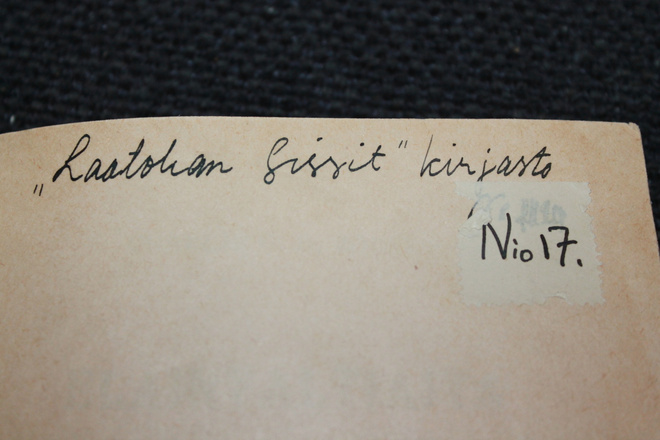 „Laatokan Sissit" kirjasto
Nio 17.